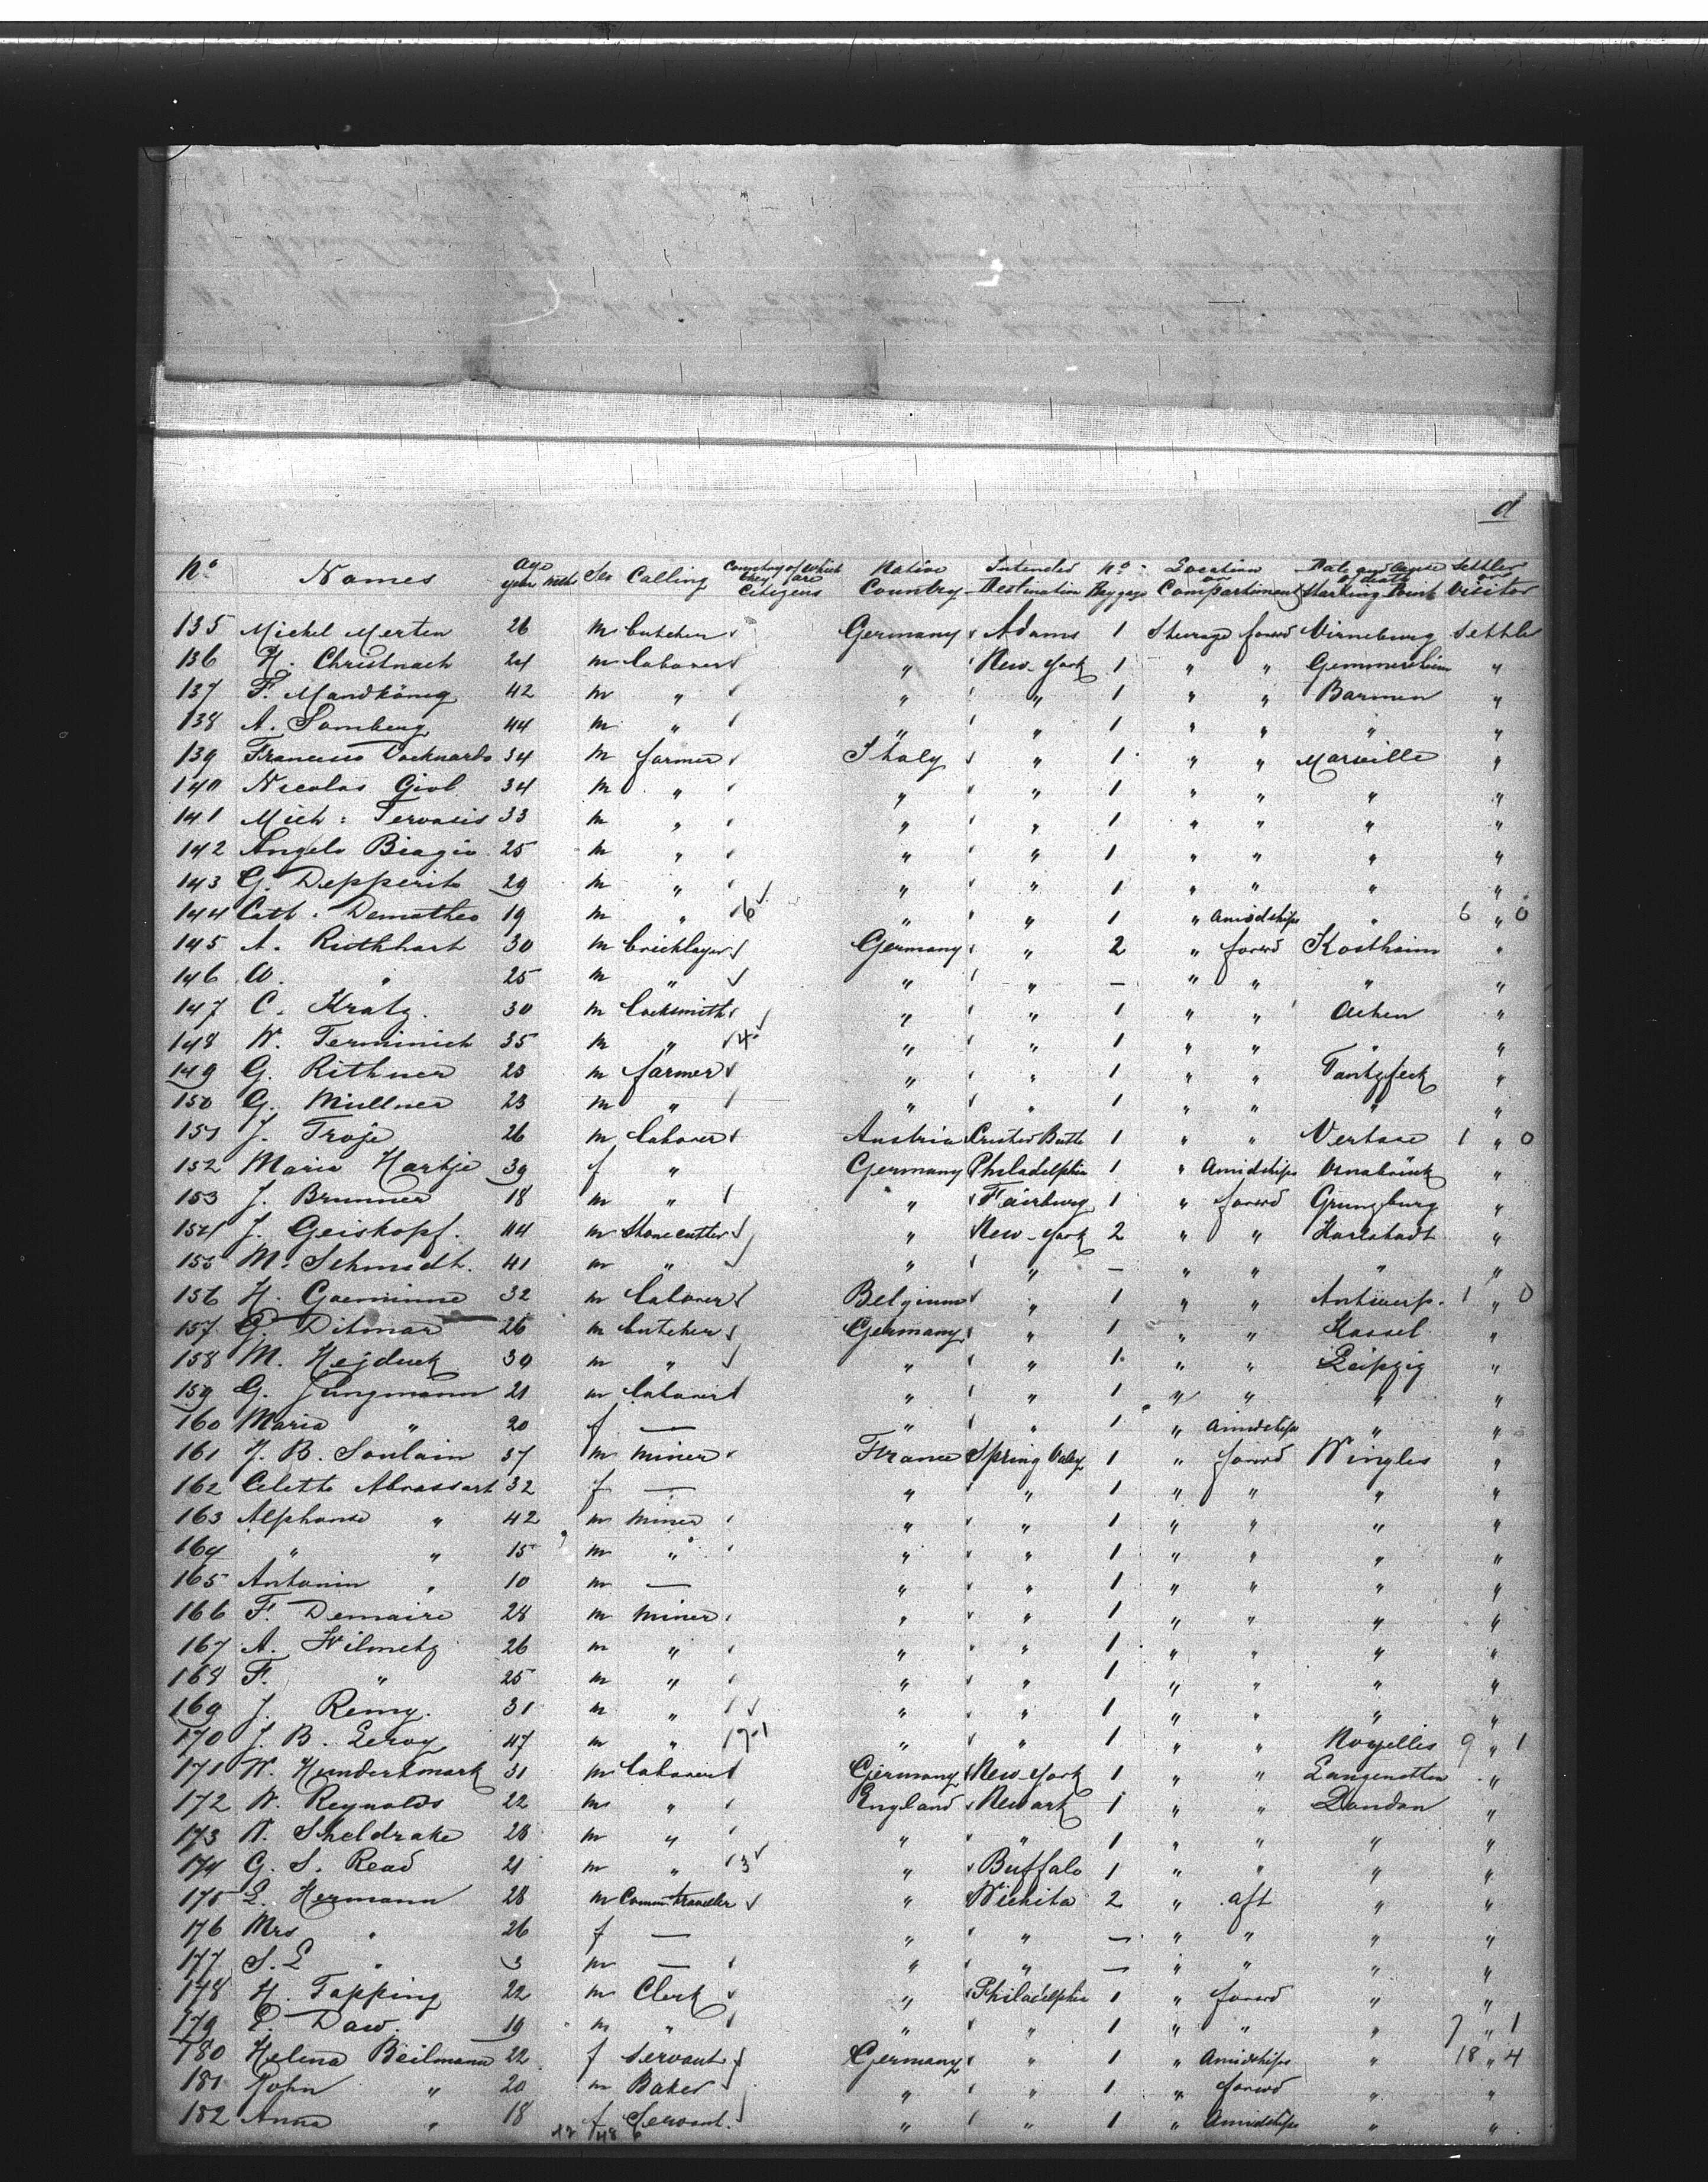 d
No Names Age year Mth Sex Calling Country of which they are Citizens Native Country Intended Destination No Baggage Location or Compartment Date and Cause of death Starting Point Settler or Visitor
135 Michel Merten 26 m butcher Germany Adams 1 Sterage forwd Virneburg Settle
136 H. Christnach 24 m laborer " New-York 1 " " "
137 F. Mandkönig 42 m " " " 1 " " Barmen "
138 A. Somberg 44 m " " " 1 " " " "
139 Francisco 34 m farmer Italy " 1 " " "
140 Nicolas Giol 34 m " " " 1 " " " "
141 Mich: 33 m " " " 1 " " " "
142 Angelo Biagio 25 m " " " 1 " " " "
143 G. Depperito 29 m " " " 1 " " " "
144 Cath. Dematheo 19 m " 6 " " 1 " Amidships " 6 " 0
145 A. 30 m bricklayer Germany " 2 " forwd Kostheim "
146 W. " 25 m " " " — " " " "
147 C. Kratz. 30 m locksmith " " 1 " " Achen "
148 W. Terminich 35 m " 4 " " 1 " " " "
149 G. Rithner 23 m farmer " " 1 " " "
150 G. Müllner 23 m " " " 1 " " " "
151 J. Troje 26 m laborer Austria Crested Butte 1 " " 1 " 0
152 Maria Hartje 39 f " Germany Philadelphia 1 " Amidships Osnabrück "
153 J. Brunner 18 m " " Fairburg 1 " forwd "
154 J. Geiskopf. 44 m Stonecutter " New-York 2 " " Karlstadt "
155 M. Schmidt. 41 m " " " — " " " "
156 H. 32 m laborer Belgium " 1 " " Antwerp. 1 " 0
157 G. Ditmar 26 m butcher Germany " 1 " " Kassel "
158 M. Hejduck 30 m " " " 1 " " Leipzig "
159 G. Jungmann 21 m laborer " " 1 " " " "
160 Maria " 20 f — " " 1 " Amidships " "
161 J. B. Soulain 37 m miner France Spring Valey 1 " forwd Wingles "
162 Celette Abrassart 32 f — " " 1 " " " "
163 Alphonse " 42 m miner " " 1 " " " "
164 " " 15 m " " " 1 " " " "
165 Antonin " 10 m — " " 1 " " " "
166 F. Demaire 28 m miner " " 1 " " " "
167 A. Wilmetz 26 m " " " 1 " " " "
168 F. " 25 m " " " 1 " " " "
169 J. Remy. 31 m " " " 1 " " " "
170 J. B. Leroy 47 m " " " 1 " " Noyelles 9 " 1
171 W. Hundertmark 31 m laborer Germany New-York 1 " " "
172 W. Reynolds 22 m " England Newark 1 " " London "
173 W. Sheldrake 28 m " " " 1 " " " "
174 G. S. Read 21 m " 3 " Buffalo 1 " " " "
175 L. Hermann 28 m Comm. traveller " Wichita 2 " aft " "
176 Mrs " 26 f — " " — " " " "
177 S. L " 3 m — " " — " " " "
178 H. Tapping 22 m Clerk " Philadelphia 1 " forwd " "
179 E. Daw. 19 m " " " 1 " " " 7 " 1
180 Helena Beilmann 22 f Servant Germany " 1 " Amidships " 18 " 4
181 John " 20 m Baker " " 1 " forwd " "
182 Anna " 18 f Servant. " " 1 " Amidships " "
42 48 6